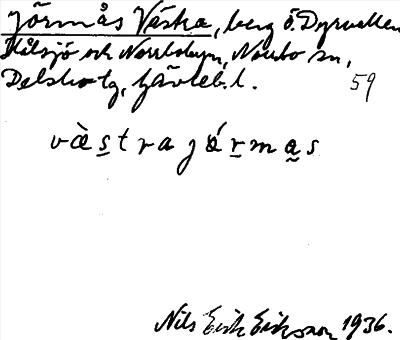 Jörmås Västra, berg ö. Dyrvallen
Hålsjö och Norrbodarn, Norrbo sn,
Delsbo tg, Gävleb. l.
59
västra jármas
Nils Erik Eriksson 1936.